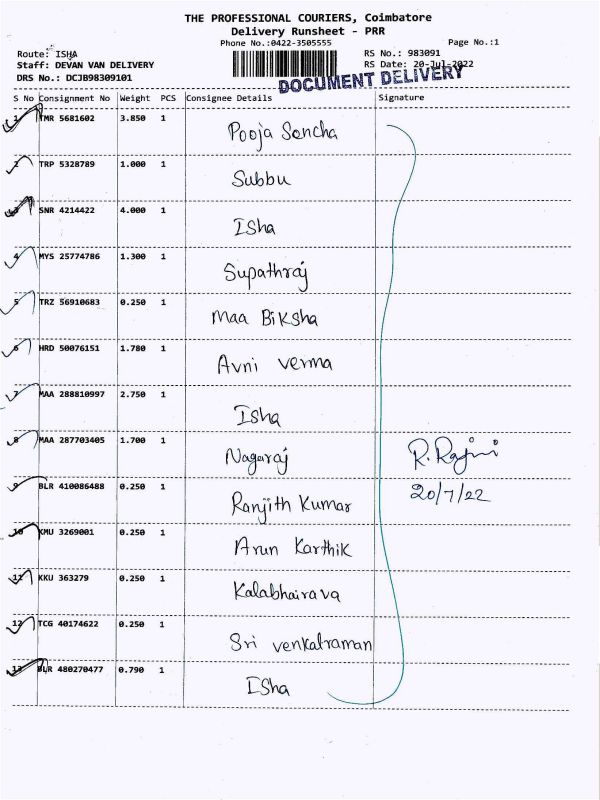 THE PROFESSIONAL COURIERS, Coimbatore
Delivery Runsheet - PRR
Phone No.:0422-3505555
Page No.:1
Route: ISHA
RS No.: 983091
Staff: DEVAN VAN DELIVERY
RS Date: 20-Jul-2022
DRS No.: DCJB98309101
DOCUMENT DELIVERY
S No Consignment No Weight PCS Consignee Details Signature
1 TMR 5681602 3.850 1 Pooja Soncha
2 TRP 5328789 1.000 1 Subbu
3 SNR 4214422 4.000 1 Isha
4 MYS 25774786 1.300 1 Supathraj
5 TRZ 56910683 0.250 1 Maa Biksha
6 HRD 50076151 1.780 1 Avni verma
7 MAA 288810997 2.750 1 Isha
8 MAA 287703405 1.700 1 Nagaraj R. Rajini
9 BLR 410086488 0.250 1 Ranjith Kumar 20/7/22
10 KMU 3269001 0.250 1 Arun Karthik
11 KKU 363279 0.250 1 Kalabhairava
12 TCG 40174622 0.250 1 Sri venkatraman
13 BLR 480270477 0.790 1 ISha